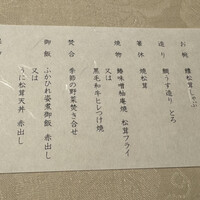 お椀 鱧松茸しゃぶ
造り 鯛うす造り とろ
箸休 焼松茸
焼物 鰆味噌柚庵焼 松茸フライ
又は
黒毛和牛ヒレつけ焼
焚合 季節の野菜焚き合せ
御飯 ふかひれ姿煮御飯 赤出し
又は
うに松茸天丼 赤出し